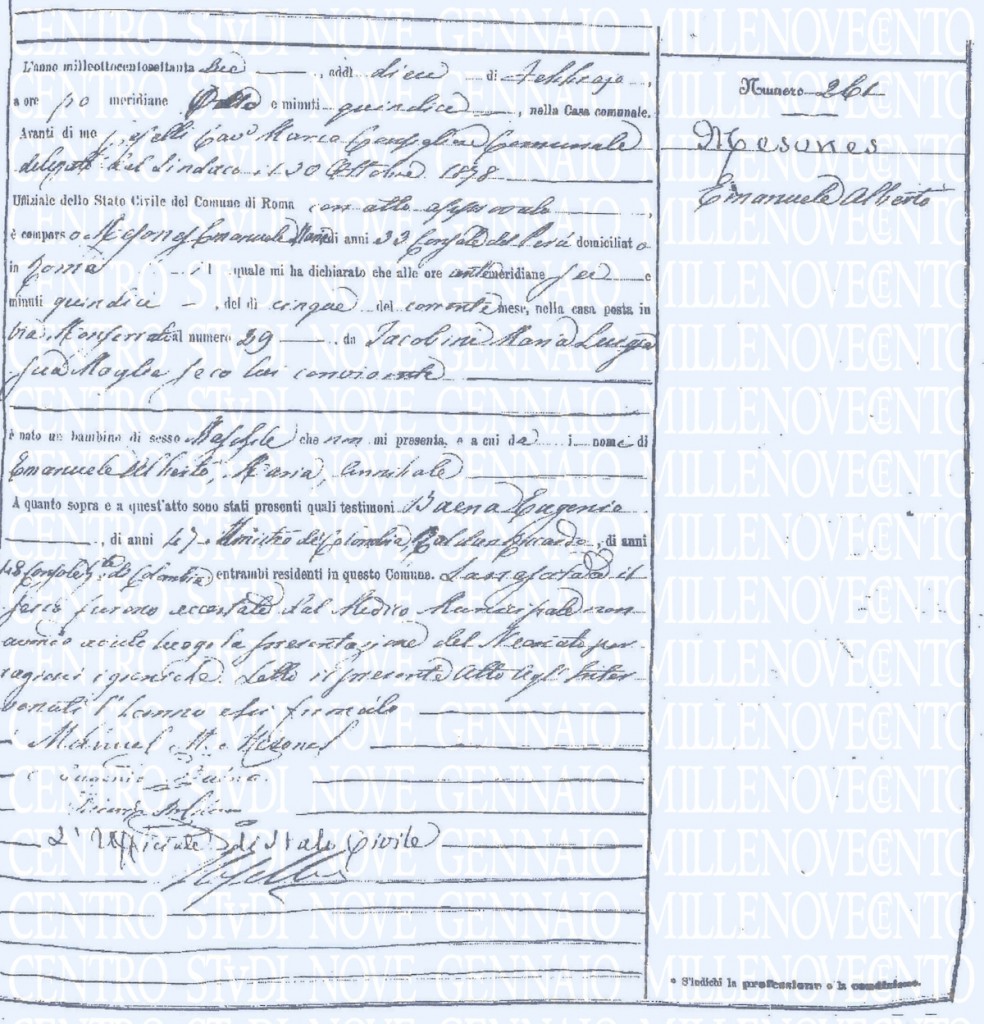 L'anno milleottocentosettanta , addì dieci di Febbrajo ,
a ore po meridiane e minuti quindici , nella Casa comunale.
Avanti di me Cavᵉ Marco Consigliere Comunale
delegato dal Sindaco il 30 Ottobre 1878
Uffiziale dello Stato Civile del Comune di Roma con atto approvato ,
è comparso Mesones Emanuele di anni 33 Console del Perù domiciliato
in Roma il quale mi ha dichiarato che alle ore antemeridiane sei e
minuti quindici , del dì cinque del corrente mese, nella casa posta in
via Monserrato al numero 29 , da Jacobini Maria Luigia
sua Moglie seco lui convivente
è nato un bambino di sesso Maschile che non mi presenta, e a cui da i nome di
Emanuele Alberto, Maria, Annibale
A quanto sopra e a quest'atto sono stati presenti quali testimoni Baena Eugenio
, di anni 47 Ministro di Colombia, Riccardo , di anni
48 Console di Colombia, entrambi residenti in questo Comune. La nascita ed il
sesso furono accertate dal Medico Municipale non
avendo avuto luogo la presentazione del Neonato per
ragioni igieniche. Letto il presente Atto agl' Inter
venuti l'hanno essi firmato
Manuel M. Mesones
Eugenio Baena
L' Ufficiale di Stato Civile
Numero 261
Mesones
Emanuele Alberto
* S'indichi la professione o la condizione.
CENTRO STVDI NOVE GENNAIO MILLENOVECENTO